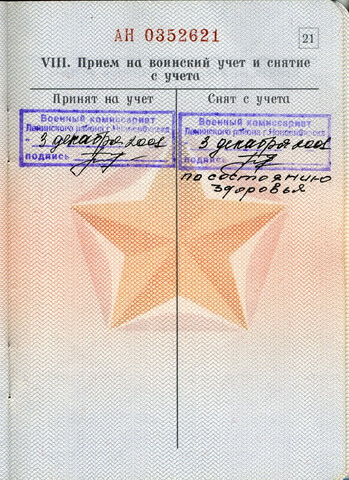 АН 0352621
21
VIII. Прием на воинский учет и снятие
с учета
Принят на учет
Снят с учета
Военный комиссариат
Ленинского района г. Новосибирска
3 декабря 2001
подпись
Военный комиссариат
Ленинского района г. Новосибирска
3 декабря 2001
подпись
по состоянию
здоровья